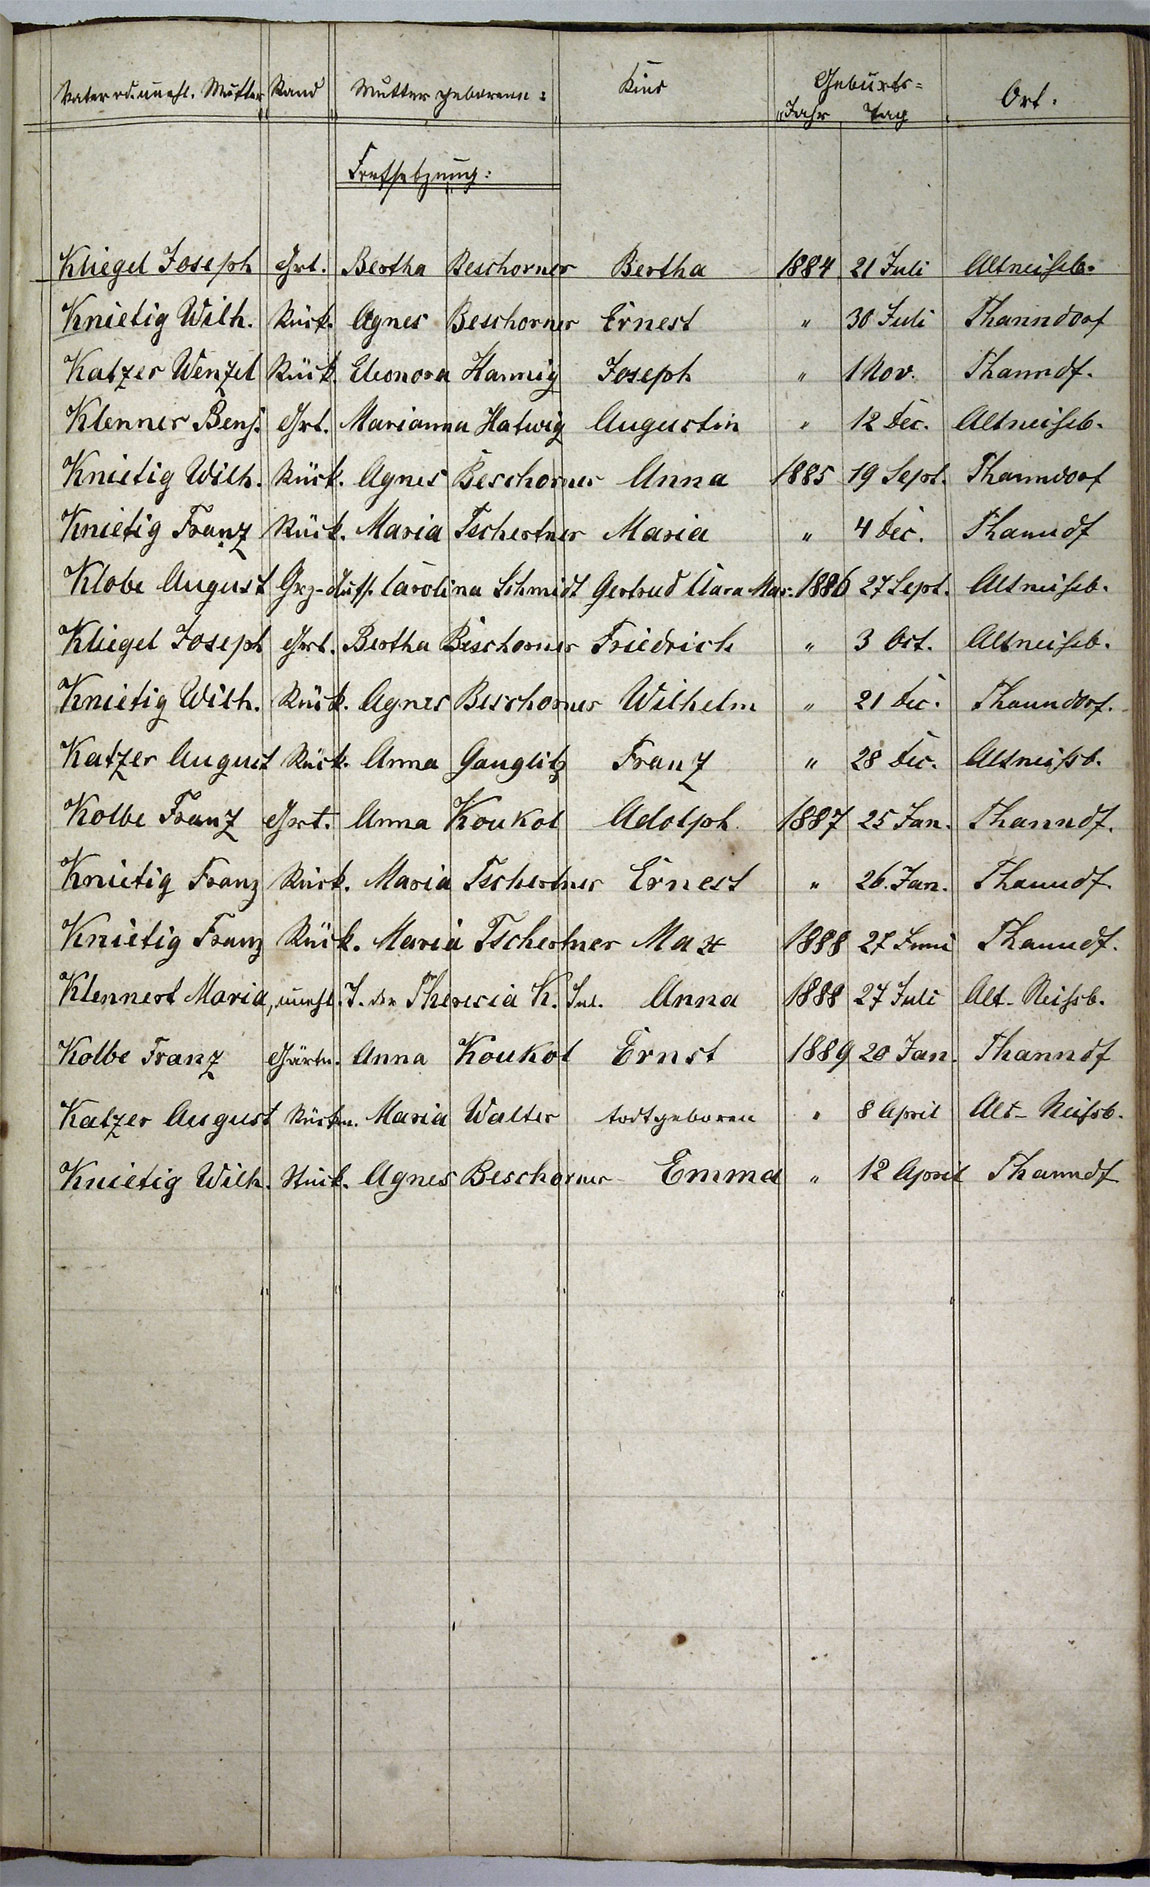 Vater od. unehl. Mutter Stand Mutter geborene: Kind Geburts= Ort.
Jahr Tag
Fortsetzung:
Kliegel Joseph Grt. Bertha Beschorner Bertha 1884 21 Juli Altneißb.
Knietig Wilh. Rück. Agnes Beschorner Ernest " 30 Juli Thanndorf
Katzer Wenzel Rück. Eleonora Hannig Joseph " 1 Nov. Thanndf.
Klenner Benj. Grt. Marianna Hatwig Augustin " 12 Dec. Altneißb.
Knietig Wilh. Rück. Agnes Beschorner Anna 1885 19 Sept. Thanndorf
Knietig Franz Rück. Maria Tschertner Maria " 4 Dec. Thanndf
Klobe August Grz-Auff. Carolina Schmidt Gertrud Clara Mar. 1886 27 Sept. Altneißb.
Kliegel Joseph Grt. Bertha Beschorner Friedrich " 3 Oct. Altneißb.
Knietig Wilh. Rück. Agnes Beschorner Wilhelm " 21 Dec. Thanndorf.
Katzer August Rück. Anna Ganglitz Franz " 28 Dec. Altneißb.
Kolbe Franz Grt. Anna Koukol Adolph. 1887 25 Jan. Thanndf.
Knietig Franz Rück. Maria Tschertner Ernest " 26. Jan. Thanndf.
Knietig Franz Rück. Maria Tschertner Max 1888 27 Juni Thanndf.
Klennert Maria, unehl. T. der Theresia K. Inl. Anna 1888 27 Juli Alt-Neißb.
Kolbe Franz Gärtn. Anna Koukol Ernst 1889 20 Jan. Thanndf
Katzer August Rückn. Maria Walter todtgeboren " 8 April Alt-Neißb.
Knietig Wilh. Stück. Agnes Beschorner Emma " 12 April Thanndf